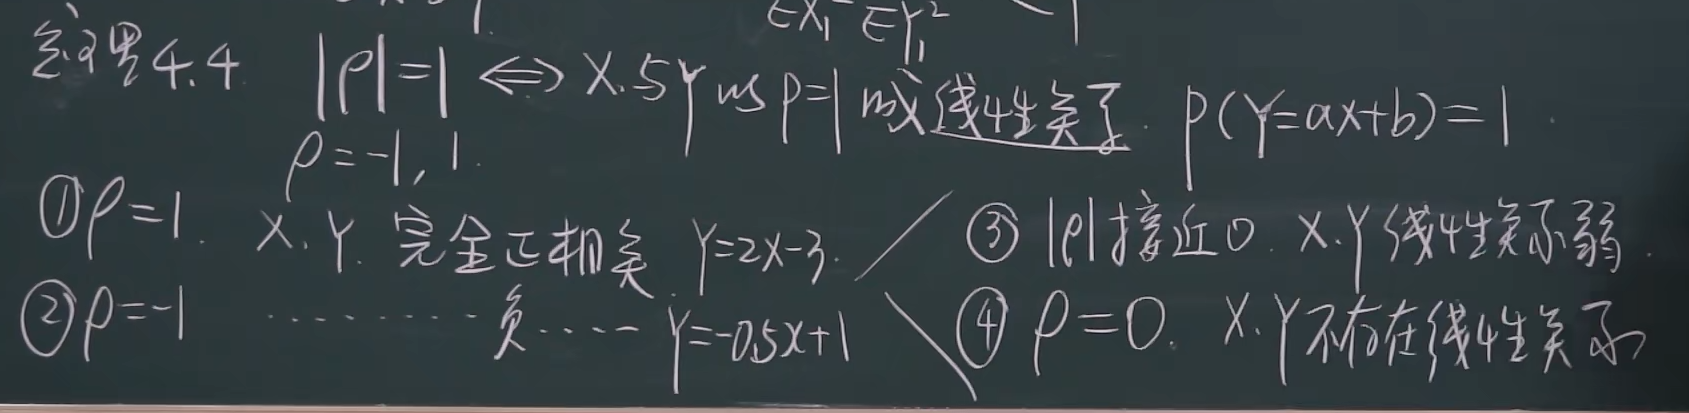 EX₁² EY₁²
定理4.4 |ρ|=1 ⟺ X.与Y以P=1成线性关系. P(Y=aX+b)=1
ρ=-1, 1.
①ρ=1. X.Y.完全正相关 Y=2X-3.
②ρ=-1 ········负····- Y=-0.5X+1
③ |ρ|接近0. X.Y线性关系弱.
④ ρ=0. X.Y不存在线性关系